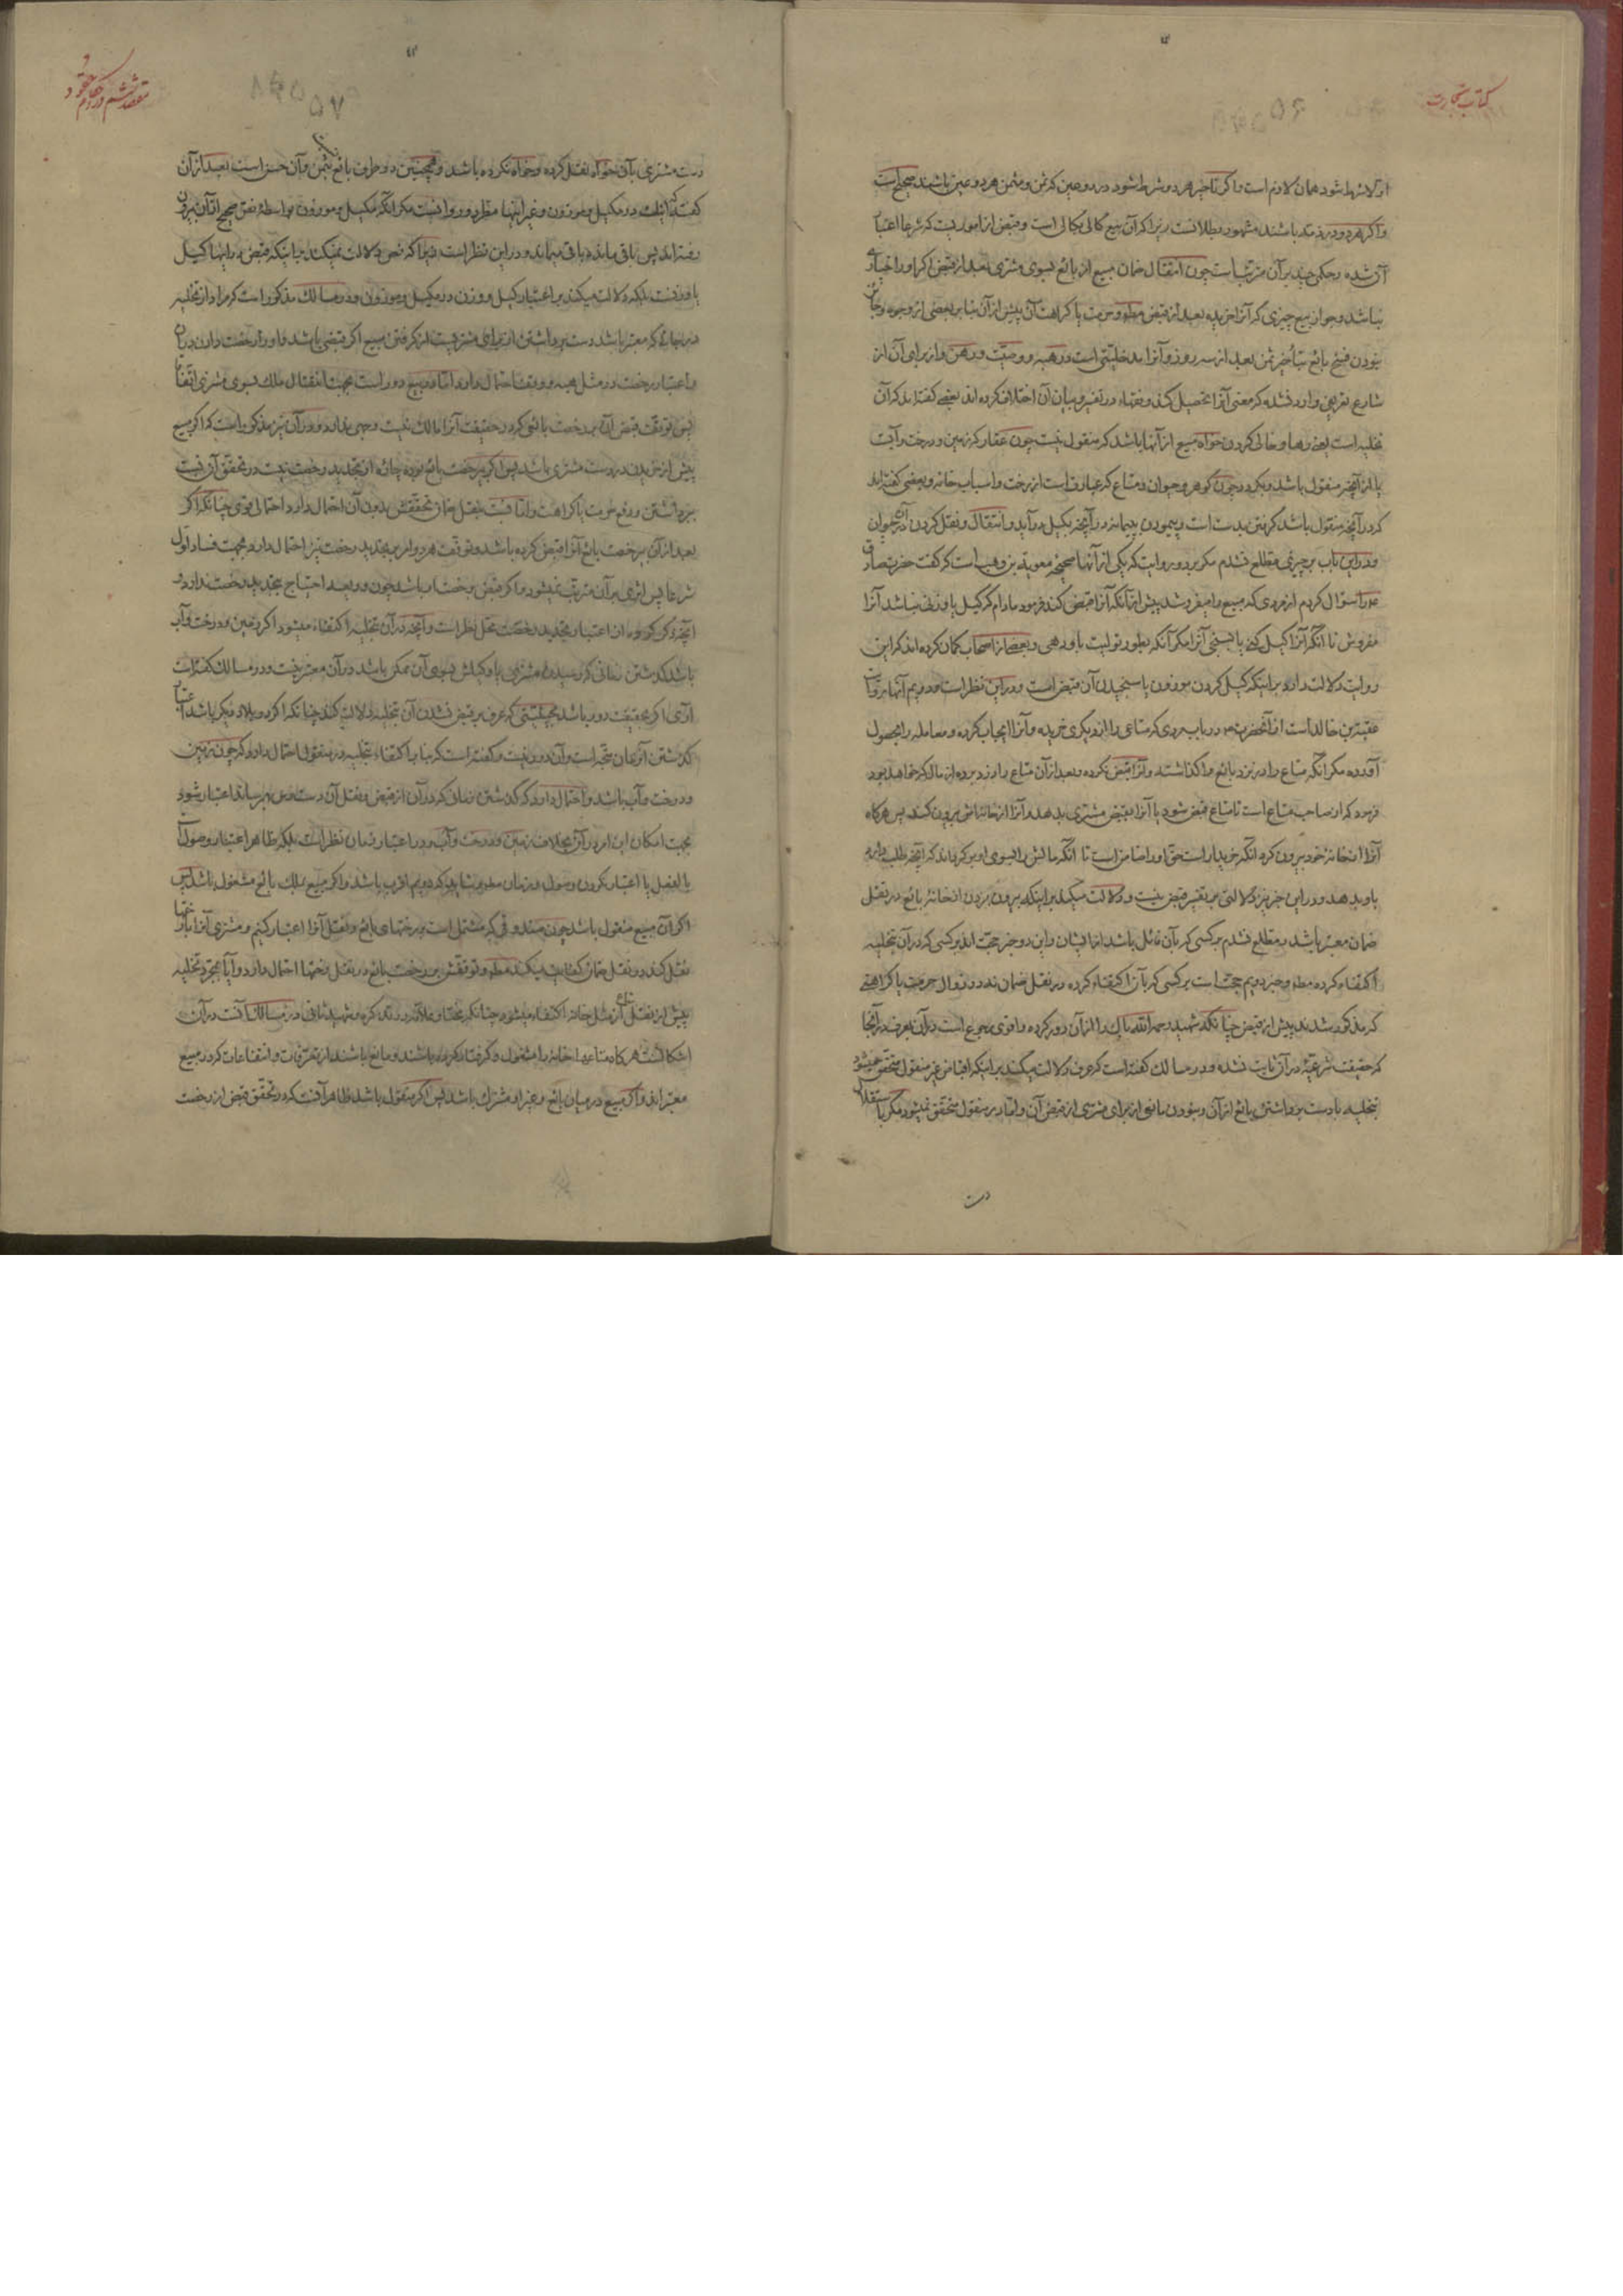 کتاب تجارت
اولا شرط شود همان لازم است و اگر تأخیر هر دو شرط شود در دو عین که ثمن و مثمن هر دو عین باشند صحیح است
و اگر هر دو در ذمه باشند مشهور بطلانست زیرا که آن بیع کالی بکالی است و قبض از اموریست که شرعا اعتبار
آن شده و حکمی چند بر آن مترتب است چون انتقال ضمان مبیع از بائع بسوی مشتری بعد از قبض اگر او را خیاری
نباشد و جواز بیع چیزی که آنرا خریده بعد از قبض مطلقا و حرمت یا کراهت آن پیش از آن بنا بر بعضی از وجوه و جائز
نبودن فسخ بائع بتأخیر ثمن بعد از سه روز و آنرا مدخلیتی است در هبه و وصیت و رهن و از برای آن از
شارع تعریفی وارد نشده که معنی آنرا تحصیل کند و فقهاء در تفسیر و بیان آن اختلاف کرده اند بعضی گفته اند که آن
تخلیه است یعنی رها و خالی کردن خواه مبیع از آنها باشد که منقول نیست چون عقار که زمین و درخت و آبست
یا از آنچه منقول باشد و بگردد چون گوهر و حیوان و متاع که عبارت است از رخت و اسباب خانه و بعضی گفته اند
که در آنچه منقول باشد گرفتن بدست است و پیمودن بپیمانه در آنچه بکیل در آید و انتقال و نقل کردن آن در حیوان
و در این باب بر چیزی مطلع نشدم مگر بر دو روایت که یکی از آنها صحیحه معویة بن وهب است که گفت حضرت صادق
را سؤال کردم از مردی که مبیع را میفروشد پیش از آنکه آنرا قبض کند فرمود مادام که کیل یا وزنی نباشد آنرا
مفروش تا آنکه آنرا کیل کنی یا بسنجی آنرا مگر آنکه بطور تولیت باو دهی و بعضی از اصحاب گمان کرده اند که این
روایت دلالت دارد بر اینکه کیل کردن موزون یا سنجیدن آن قبض است و در این نظر است و دویم آنها روایت
عقبة بن خالد است از آنحضرت در باب مردی که متاعی را از دیگری خریده و آنرا ایجاب کرده و معامله را بحصول
آورده مگر آنکه متاع را در نزد بائع وا گذاشته و آنرا قبض نکرده و بعد از آن متاع را دزد برده از مال که خواهد بود
فرمود که از صاحب متاع است تا متاع قبض شود یا آنرا بقبض مشتری بدهد و آنرا از خانه اش بیرون کند پس هر گاه
آنرا از خانه خود بیرون کرد آنگه خریدار است حق او را ضامن است تا آنگه مالش را بسوی او بر گرداند که آنچه طلب دارد
باو بدهد و در این خبر نیز دلالتی بر تفسیر قبض نیست و دلالت میکند بر اینکه بیرون بردن از خانه بائع در نقل
ضمان معتبر باشد و مطلع نشدم بر کسی که بآن قائل باشد از ایشان و این دو خبر حجت اند بر کسی که در آن بتخلیه
اکتفاء کرده مطلقا و خبر دویم حجت است بر کسی که بآن اکتفاء کرده در نقل ضمان نه در زوال حرمت یا کراهتی
که مذکور شدند پیش از قبض چنانکه شهید رحمه الله باک را از آن دور کرده و اقوی رجوع است در آن بعرف در آنجا
که حقیقت شرعیه در آن ثابت نشده و در مسالک گفته است که عرف دلالت میکند بر اینکه اقباض غیر منقول متحقق میشود
بتخلیه با دست برداشتن بائع از آن و نبودن مانعی از برای مشتری از قبض آن و اما در منقول متحقق نمیشود مگر باستقلال
دست
مقصد ششم در احکام عقود
دست مشتری بآن خواه نقل کرده و خواه نکرده باشد و همچنین در طرف بائع بثمن و آن حسن است بعد از آن
گفته که اینست در مکیل و موزون و غیر اینها مطرد و روا نیست مگر آنگه مکیل و موزون بواسطه نص صحیح از آن بیرون
رفته اند پس باقی مانده باقی میماند و در این نظر است زیرا که نص دلالت نمیکند بر اینکه قبض در اینها کیل
یا وزنست بلکه دلالت میکند بر اعتبار کیل و وزن در مکیل و موزون و در مسالک مذکور است که مراد از تخلیه
در جائی که معتبر باشد دست برداشتن از برای مشتریست از گرفتن مبیع اگر مقتضی باشد و او را رخصت دادن در آن
و اعتبار رخصت در مثل هبه و وقف احتمال دارد و اما در بیع دور است بجهت انتقال ملک بسوی مشتری اتفاقا
پس توقف قبض آن بر رخصت بائعی که در حقیقت آنرا مالک نیست وجهی ندارد و در آن نیز مذکور است که اگر مبیع
پیش از خریدن در دست مشتری باشد پس اگر برخصت بائع بوده چاره از تجدید رخصت نیست در تحقق آن نسبت
برداشتن و رفع حرمت یا کراهت و اما نسبت بنقل ضمان تحققش بدون آن احتمال دارد احتمالی قوی چنانکه اگر
بعد از آن برخصت بائع آنرا قبض کرده باشد و توقف هر دو امر بر تجدید رخصت نیز احتمال دارد بجهت فساد اول
شرعا پس اثری بر آن مترتب نمیشود و اگر قبض برخصت او باشد چون ودیعه احتیاج بتجدید رخصت ندارد و
آنچه ذکر کرده از اعتبار تجدید رخصت محل نظر است و آنچه در آن بتخلیه اکتفاء میشود اگر زمین و درخت و آب
باشد گذشتن زمانی که رسیدن مشتری یا وکیلش بسوی آن ممکن باشد در آن معتبر نیست و در مسالک گفته است
آری اگر بحقیقت دور باشد بحیثیتی که عرف بر قبض نشدن آن بتخلیه دلالت کند چنانکه اگر در بلاد دیگر باشد اعتبار
گذشتن آنزمان متجه است و آن دور نیست و گفته است که بنا بر اکتفاء بتخلیه در منقول احتمال دارد که چون زمین
و درخت و آب باشد و احتمال دارد که گذشتن زمانی که در آن از قبض و نقل آن دست رس بهم رساند اعتبار شود
بجهت امکان این امر در آن بخلاف زمین و درخت و آب و در اعتبار زمان نظر است بلکه ظاهر اعتبار وصول آن
بالفعل یا اعتبار نکردن وصول و زمان مطلقا و شاید که دویم اقرب باشد و اگر مبیع بملک بائع مشغول باشد پس
اگر آن مبیع منقول باشد چون صندوقی که مشتمل است بر رختهای بائع و نقل آنرا اعتبار کنیم و مشتری آنرا با رختها
نقل کند در نقل ضمان کفایت میکند مطلقا و توقفش بر رخصت بائع در نقل رختها احتمال دارد و آیا بمجرد تخلیه
پیش از نقل متاع از مثل خانه اکتفاء میشود چنانکه مختار علامه در تذکره و شهید ثانی در مسالک است در آن
اشکالست هر گاه متاعها خانه را مشغول و گرفتار کرده باشند و مانع باشند از تصرفات و انتفاعات که در مبیع
معتبر اند و اگر مبیع در میان بائع و غیر او مشترک باشد پس اگر منقول باشد ظاهر آنست که در تحقق قبض از رخصت